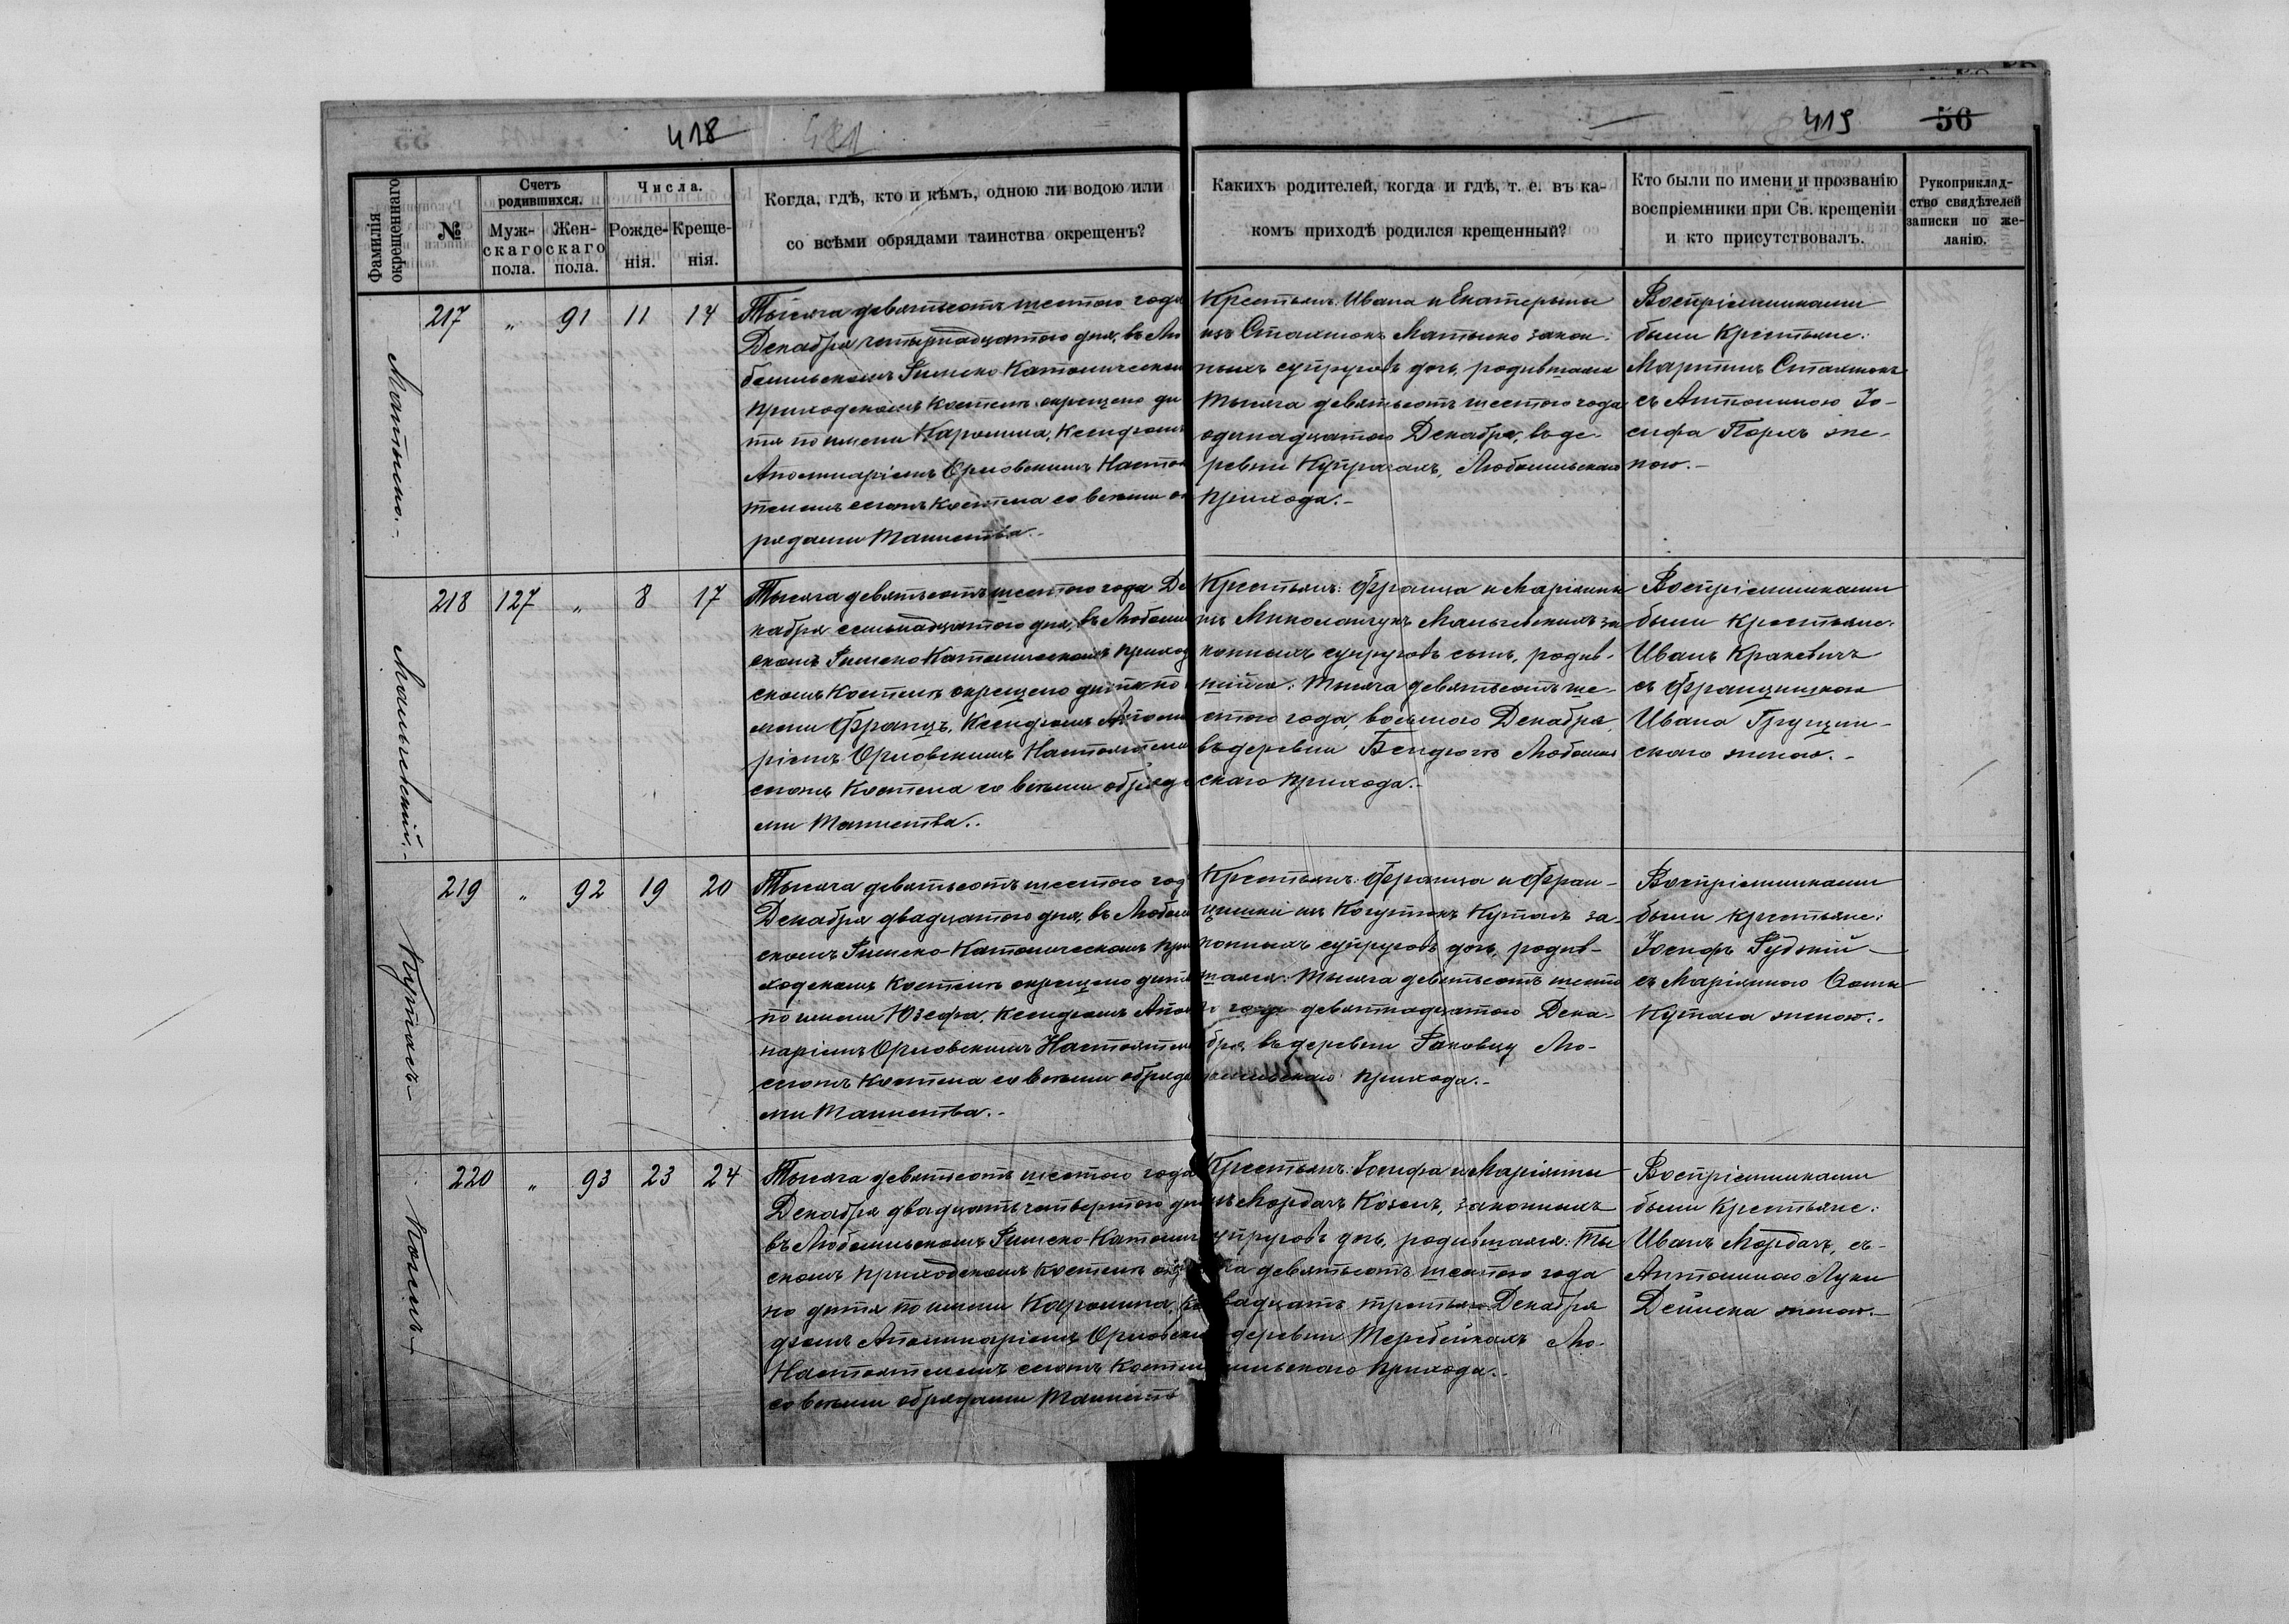 418
419
56
Фамилія окрещеннаго
№
Счетъ родившихся.
Муж-скаго пола.
Жен-скаго пола.
Числа.
Рожде-нія.
Креще-нія.
Когда, гдѣ, кто и кѣмъ, одною ли водою или
со всѣми обрядами таинства окрещенъ?
Какихъ родителей, когда и гдѣ, т. е. въ ка-
комъ приходѣ родился крещенный?
Кто были по имени и прозванію
воспріемники при Св. крещеніи
и кто присутствовалъ.
Рукоприклад-
ство свидѣтелей
записки по же-
ланію.
Матыско.-
217 " 91 11 14
Тысяча девятьсотъ шестого года
Декабря четырнадцатого дня, въ Лю
бешьскомъ Римско-Католическом
приходскомъ костелѣ окрещено ди
тя по имени Каролина, Ксендзомъ
Аполинаріемъ Орловскимъ Настоя
телемъ сего Костела со всѣми об
рядами Таинства.-
Крестьянъ: Ивана и Екатерины
изъ Стахтокъ Матыско закон-
ныхъ супруговъ дочь, родившаяся
тысяча девятьсотъ шестого года
одинадцатого Декабря, въ де-
ревни Купрагахъ, Любешьскаго
прихода.-
Воспріемниками
были Крестьяне:
Мартинъ Стахтокъ
съ Антониною Іо-
сифа Порхъ же-
ною.-
218 127 " 8 17
Тысяча девятьсотъ шестого года Де
кабря семьнадцатого дня, въ Любеш
скомъ Римско-Католическомъ приход
скомъ Костелѣ окрещено дитя по
мени Францъ, Ксендзомъ Аполи
ріемъ Орловскимъ Настоятеле
Костела со всѣми обряд
ми Таинства.-
Крестьянъ: Франца и Маріанны
изъ за
конныхъ супруговъ сынъ, родив-
шійся: тысяча девятьсотъ ше-
стого года, восьмого Декабря,
въ деревни Любеш
скаго прихода.-
Воспріемниками
были Крестьяне:
Иванъ Кракевичъ
съ Францишкою
Ивана Грущин-
скаго женою.-
Куталъ
219 " 92 19 20
Тысяча девятьсотъ шестого год
Декабря двадцатого дня, въ Любеш
скомъ Римско-Католическомъ при
ходскомъ Костелѣ окрещено дитя
по имени Юзефа, Ксендзомъ Апол
наріемъ Орловскимъ Настоятеле
Костела со всѣми обряда
ми Таинства.-
Крестьянъ: Франца и Фран-
цишки изъ Когутокъ Куталъ за-
конныхъ супруговъ дочь, родив-
шаяся: тысяча девятьсотъ шесто
го года девятнадцатого Дека-
бря, въ деревни Раковцу Лю-
прихода.-
Воспріемниками
были крестьяне:
Іосифъ Рудзкій
съ Маріанною Фомы
Кутала женою.-
Козелъ
220 " 93 23 24
Тысяча девятьсотъ шестого года
Декабря двадцатьчетвертого дня
въ Любешьскомъ Римско-Католич
скомъ приходскомъ Костелѣ
но дитя по имени Каролина, Кс
дзомъ Аполинаріемъ Орловским
Настоятелемъ сего Костел
со всѣми обрядами Таинств
Крестьянъ: Іосифа и Маріанны
изъ Мордачъ Козелъ, законныхъ
упруговъ дочь, родившаяся: ты
ча девятьсотъ шестого года
вадцать третьяго Декабря
деревни Теребейкахъ Лю-
шьскаго прихода.-
Воспріемниками
были Крестьяне:
Иванъ Мордачъ, съ-
Антониною Луки
Дейнека женою.-